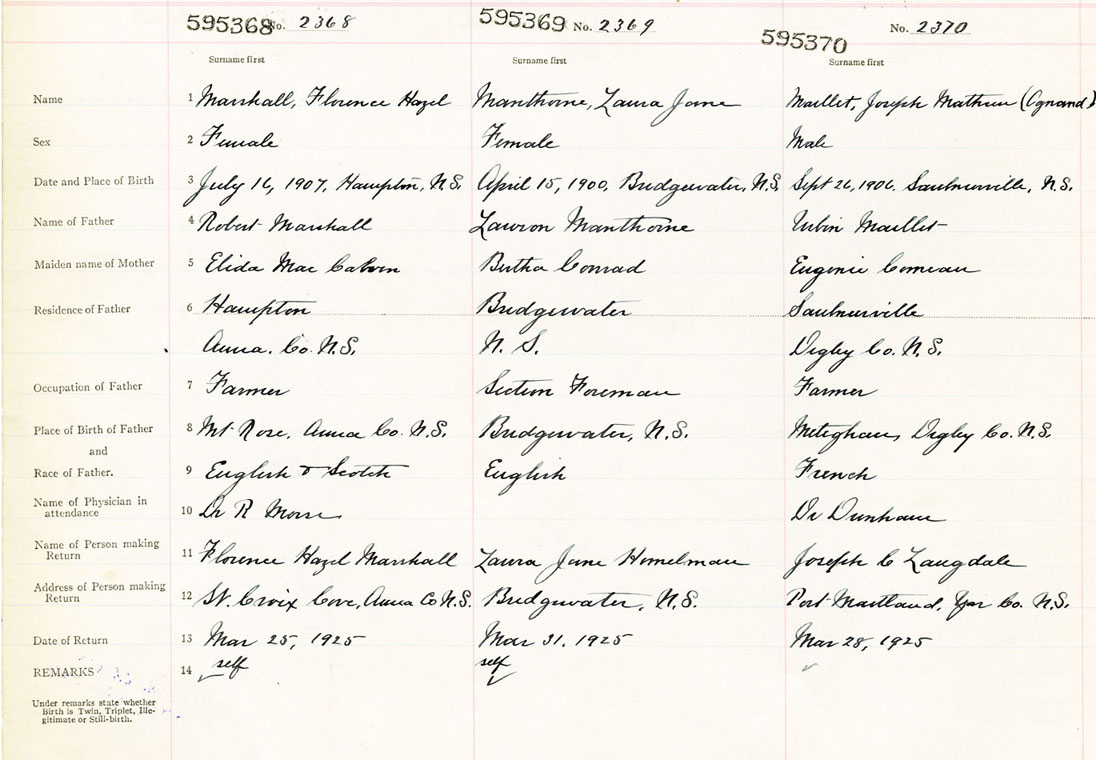 595368 No. 2368 595369 No. 2369 595370 No. 2370
Surname first Surname first Surname first
Name 1 Marshall, Florence Hazel Manthorne, Laura Jane Maillet, Joseph Mathew
Sex 2 Female Female Male
Date and Place of Birth 3 July 16, 1907, Hampton, N.S. April 15, 1900, Bridgewater, N.S. Sept 26, 1906, Saulnierville, N.S.
Name of Father 4 Robert Marshall Manthorne Urbin Maillet
Maiden name of Mother 5 Elida Mac Bertha Conrad Eugenie Comeau
Residence of Father 6 Hampton Bridgewater Saulnierville
Anna. Co. N.S. N. S. Digby Co. N.S.
Occupation of Father 7 Farmer Section Foreman Farmer
Place of Birth of Father 8 Mt Rose, Anna Co. N.S. Bridgewater, N.S. Meteghan, Digby Co. N.S.
and
Race of Father. 9 English & Scotch English French
Name of Physician in
attendance 10 Dr R Morse Dr Dunham
Name of Person making
Return 11 Florence Hazel Marshall Laura Jane Joseph C Langdale
Address of Person making
Return 12 St. Croix Cove, Anna Co N.S. Bridgewater, N.S. Port Maitland, Yar Co. N.S.
Date of Return 13 Mar 25, 1925 Mar 31, 1925 Mar 28, 1925
REMARKS 14 self self
Under remarks state whether
Birth is Twin, Triplet, Ille-
gitimate or Still-birth.